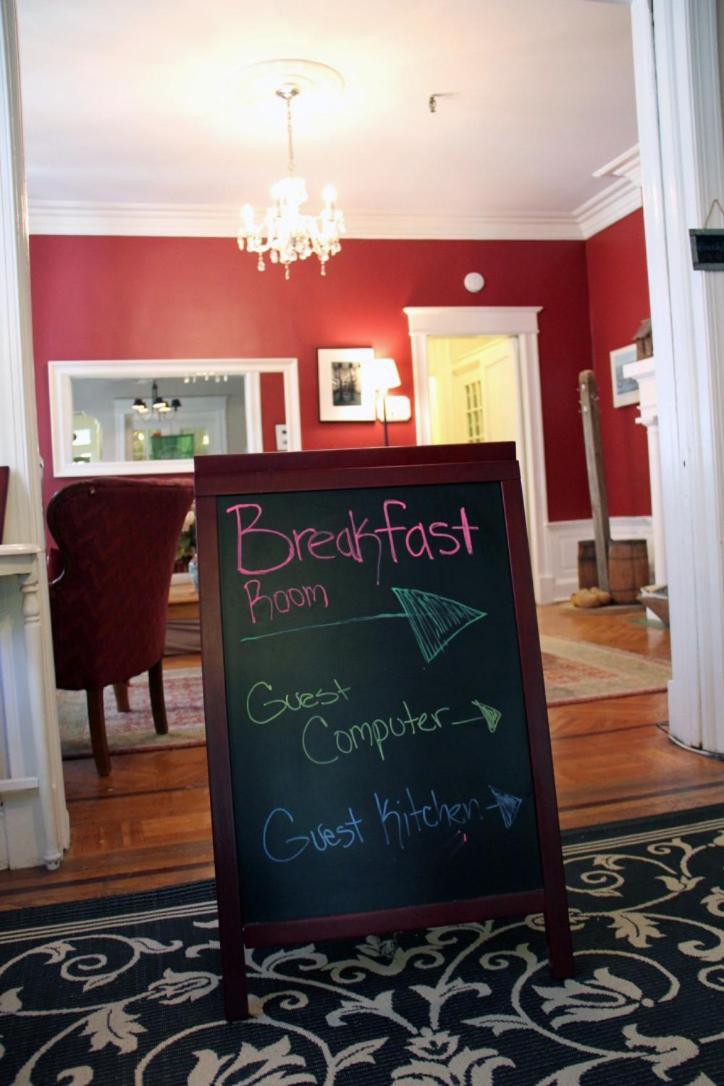 Breakfast
Room
Guest
Computer
Guest Kitchen